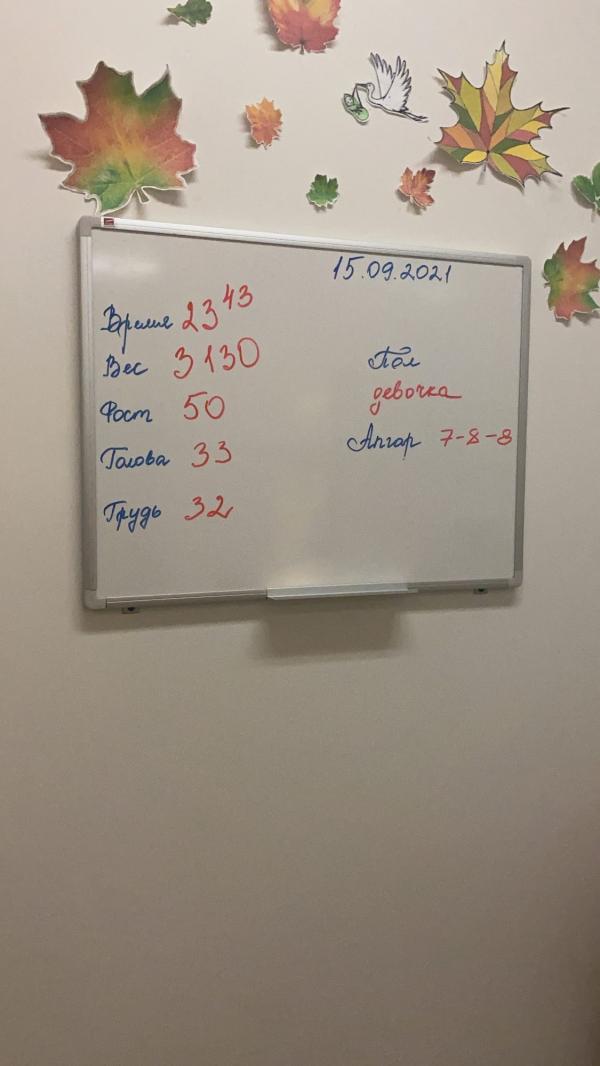 15.09.2021
Время 23 43
Вес 3130
Рост 50
Голова 33
Грудь 32
Пол
девочка
Апгар 7-8-8